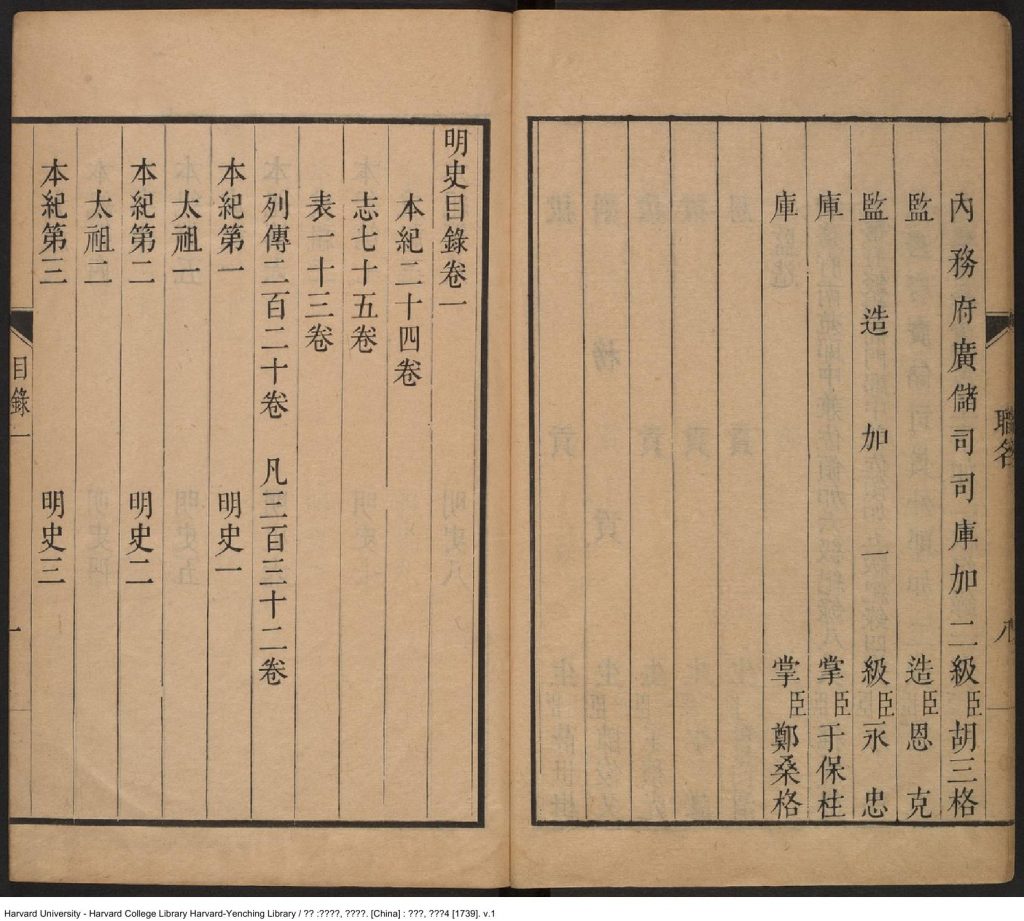 內務府廣儲司司庫加二級臣胡三格
監造臣恩克
監造加一級臣永忠
庫掌臣于保柱
庫掌臣鄭桑格
職名
八
明史目錄卷一
本紀二十四卷
志七十五卷
表一十三卷
列傳二百二十卷 凡三百三十二卷
本紀第一 明史一
太祖一
本紀第二 明史二
太祖二
本紀第三 明史三
目錄一
一
Harvard University - Harvard College Library Harvard-Yenching Library / ?? :????, ????. [China] : ???, ???4 [1739]. v.1